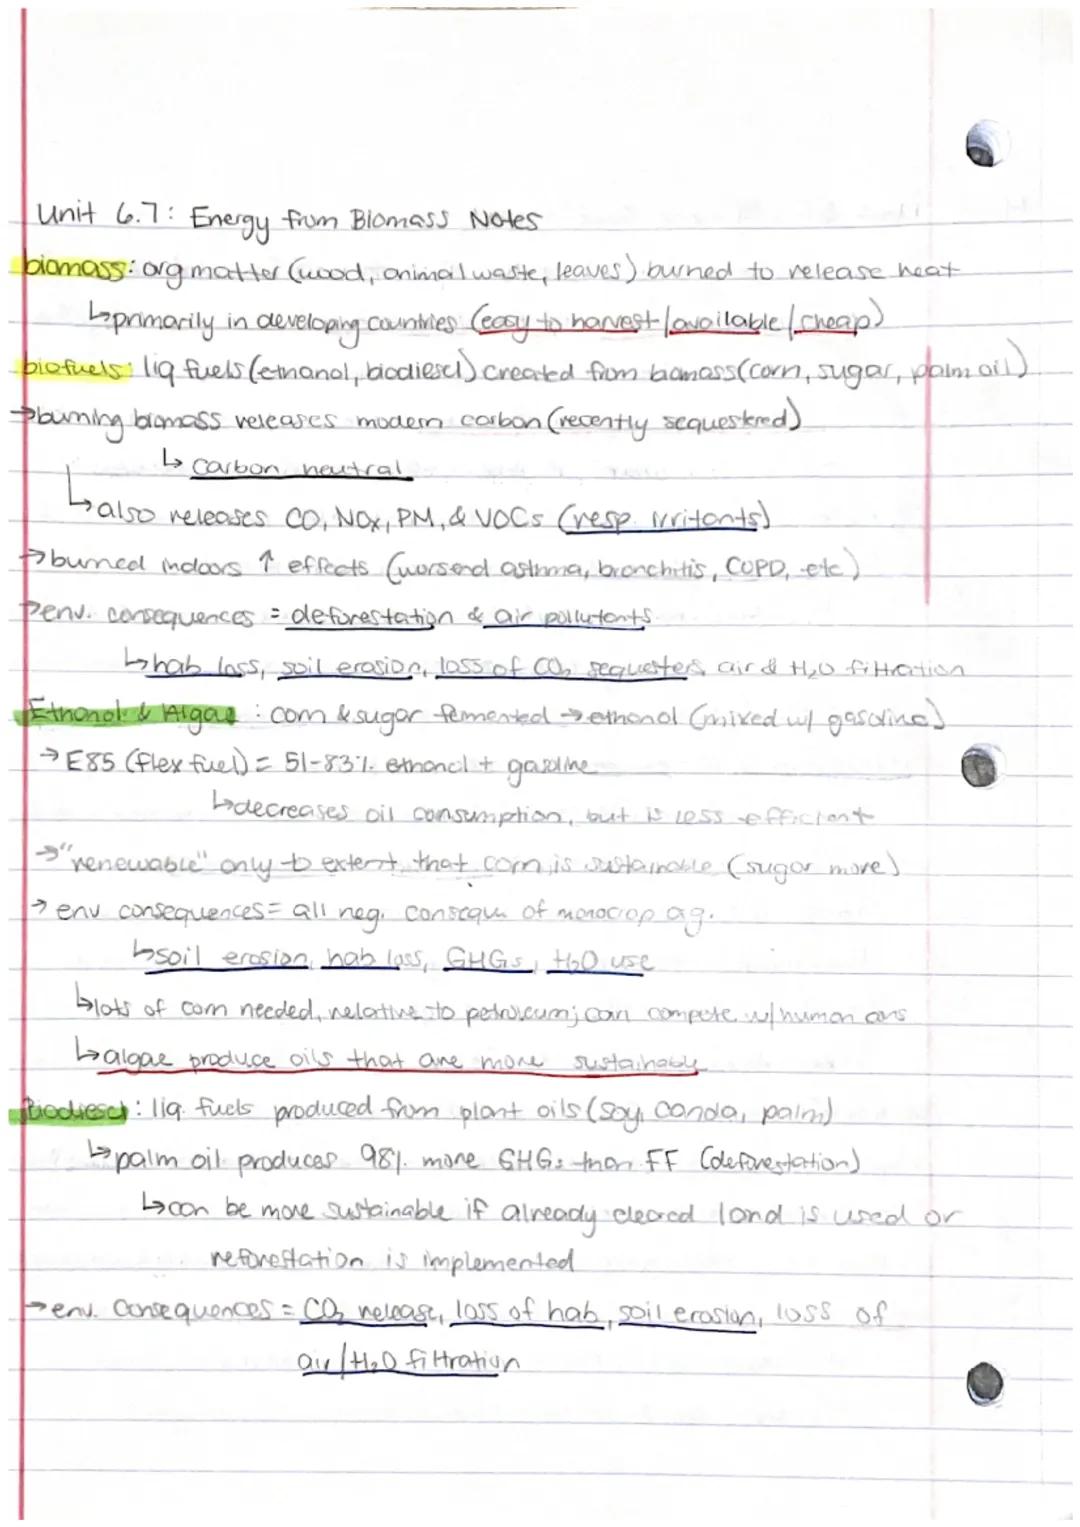 Unit 6.7: Energy from Biomass Notes
biomass: org matter (wood, animal waste, leaves) burned to release heat
↳primarily in developing countries (easy to harvest/available/cheap)
biofuels: liq fuels (ethanol, biodiesel) created from biomass (corn, sugar, palm oil)
→burning biomass releases modern carbon (recently sequestered)
↳ carbon neutral
↳also releases CO, NOx, PM, & VOCs (resp. irritants)
→burned indoors ↑ effects (worsend asthma, bronchitis, COPD, etc.)
→env. consequences = deforestation & air pollutants
↳hab loss, soil erosion, loss of CO₂ sequesters, air & H₂O filtration
Ethanol & Algae : corn & sugar fermented → ethanol (mixed w/ gasoline)
→ E85 (flex fuel) = 51-83% ethanol + gasoline
↳decreases oil consumption, but is less efficient
→"renewable" only to extent that corn is sustainable (sugar more)
→ env consequences = all neg. consequ of monocrop ag.
↳soil erosion, hab loss, GHGs, H₂O use
↳lots of corn needed, relative to petroleum; can compete w/ human cons
↳algae produce oils that are more sustainable
Biodiesel : liq. fuels produced from plant oils (soy, canola, palm)
↳palm oil produces 98% more GHGs than FF (deforestation)
↳can be more sustainable if already cleared land is used or
reforestation is implemented
→env. consequences = CO₂ release, loss of hab, soil erosion, loss of
air/H₂O filtration